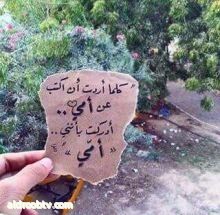 كلما أردت أن أكتب
عن أمي ..
أدركت بأنني ..
« أمّي »
aldroobtv.com